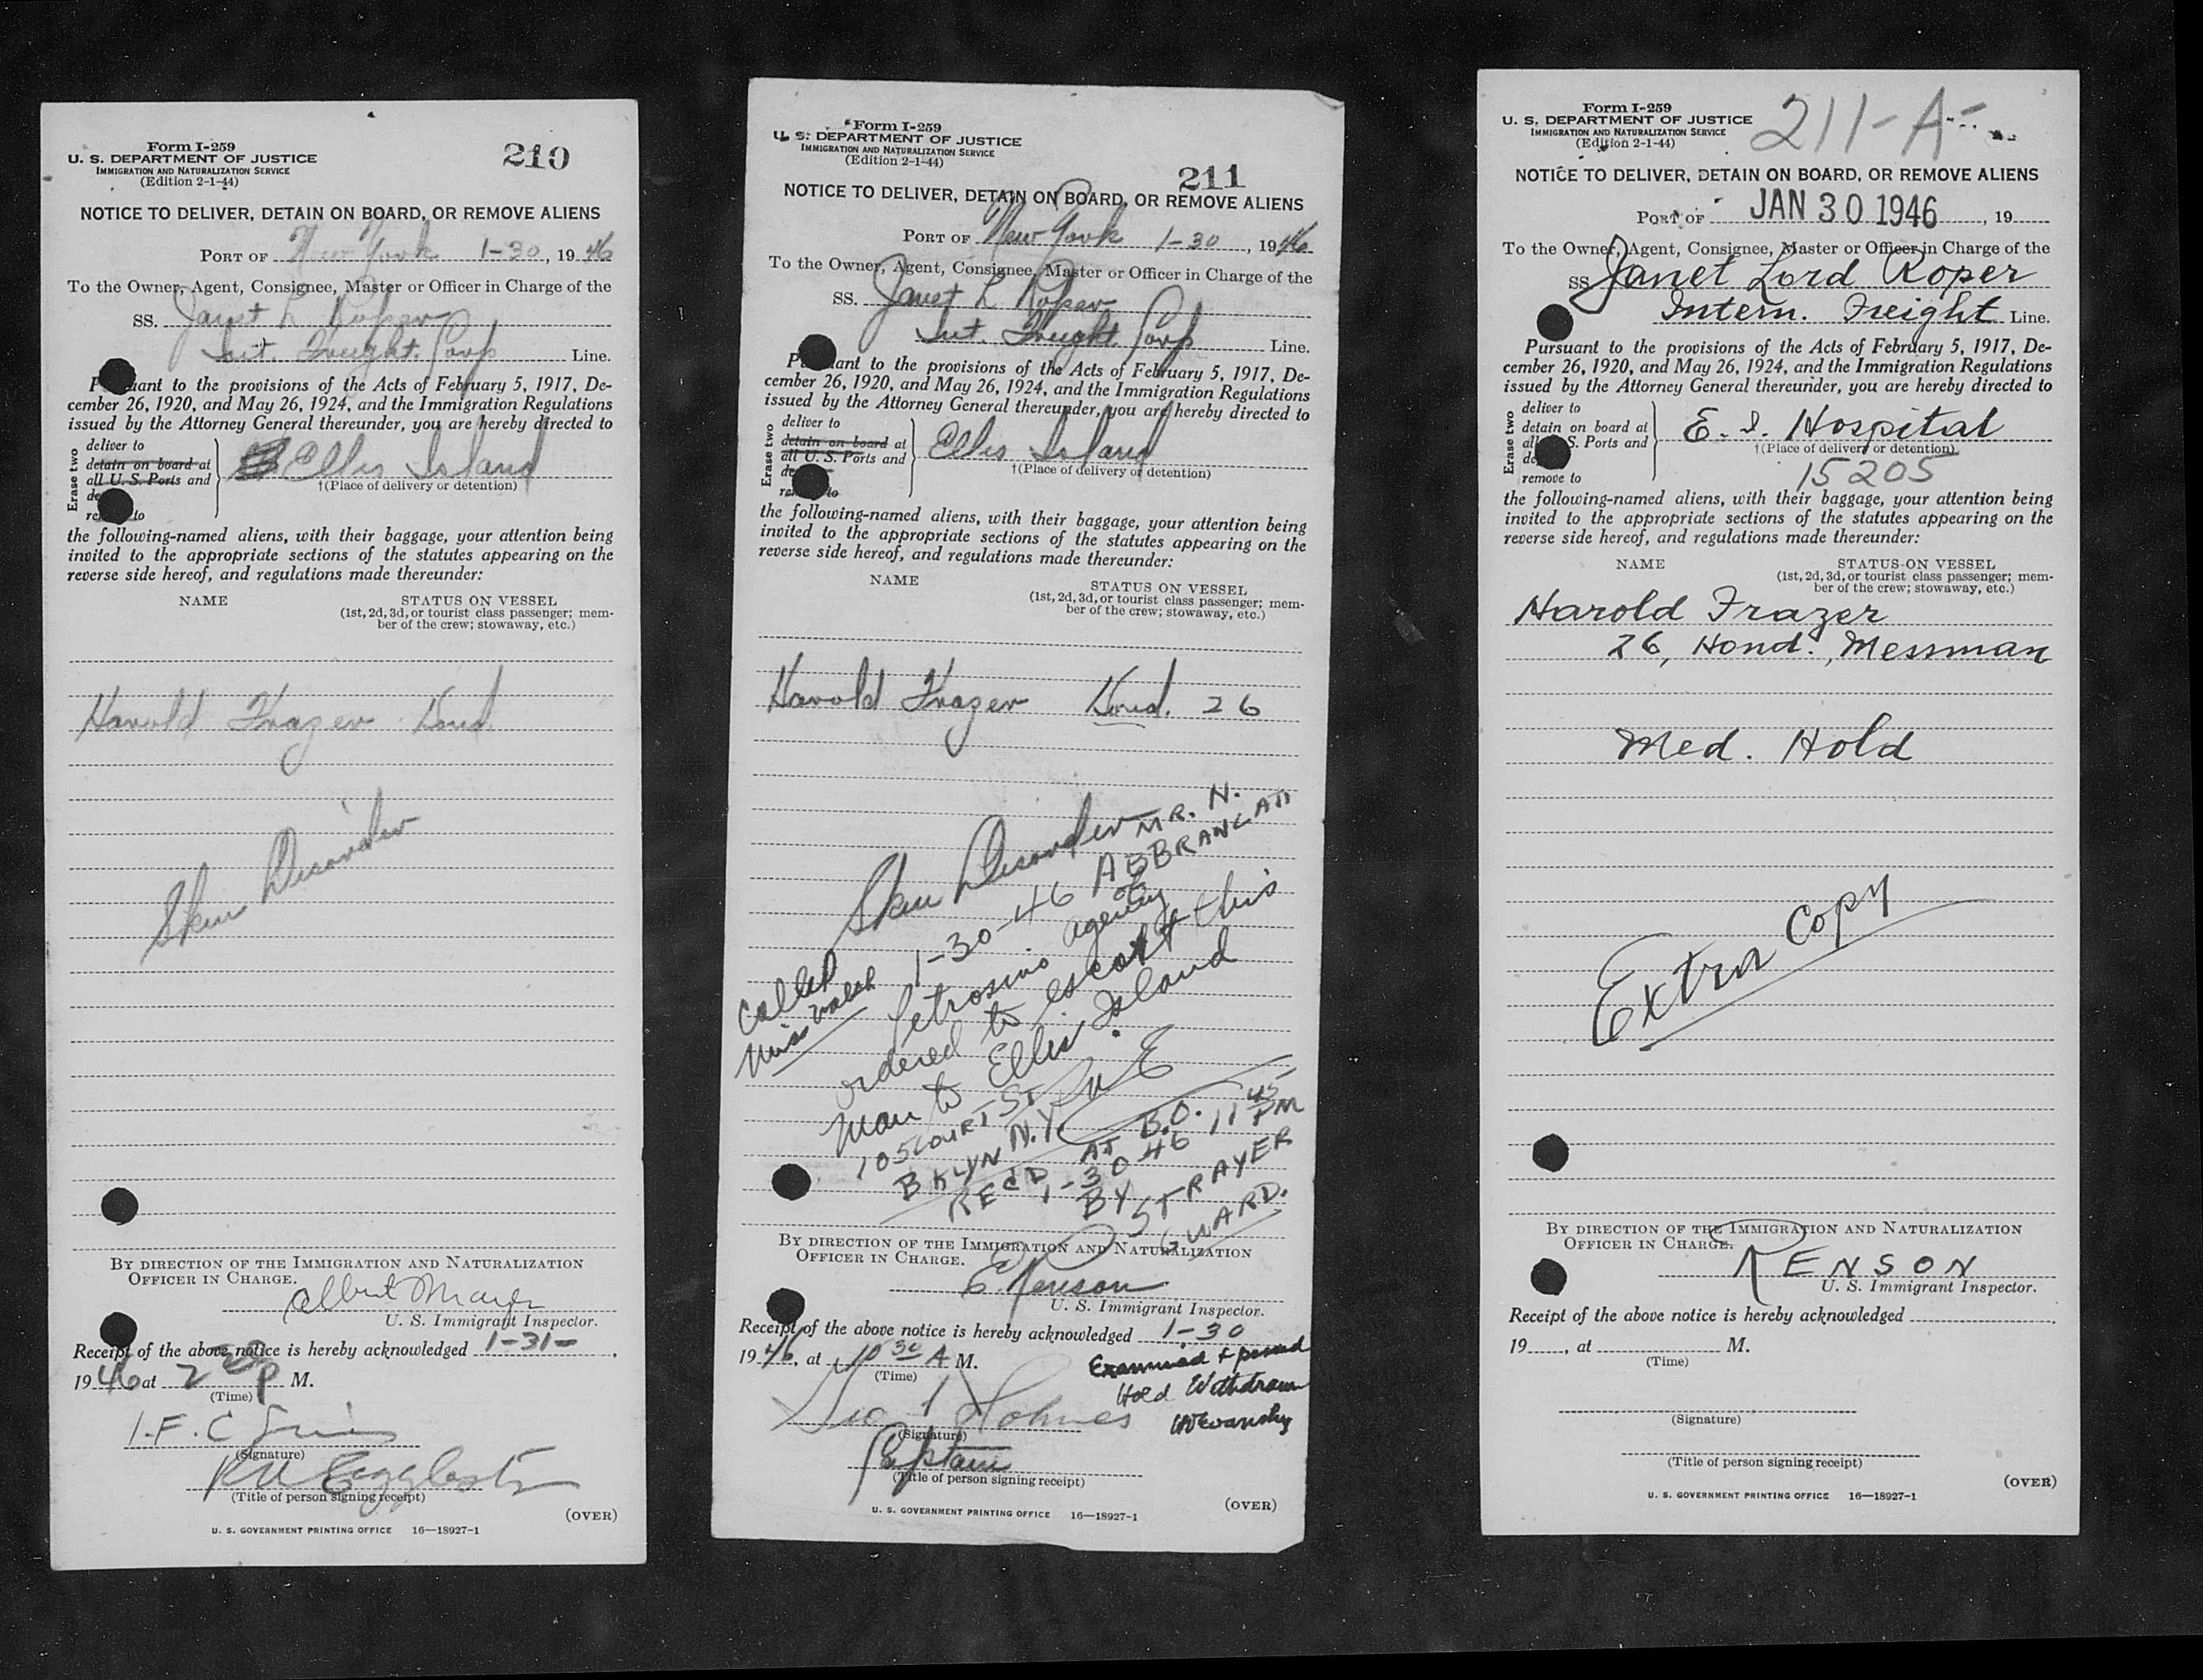 Form I-259
U. S. DEPARTMENT OF JUSTICE
IMMIGRATION AND NATURALIZATION SERVICE
(Edition 2-1-44)
210
NOTICE TO DELIVER, DETAIN ON BOARD, OR REMOVE ALIENS
PORT OF New York 1-30, 1946
To the Owner, Agent, Consignee, Master or Officer in Charge of the
SS. Janet L Roper
Int. Freight. Corp Line.
Pursuant to the provisions of the Acts of February 5, 1917, De-
cember 26, 1920, and May 26, 1924, and the Immigration Regulations
issued by the Attorney General thereunder, you are hereby directed to
Erase two
deliver to
detain on board at
all U. S. Ports and
Ellis Island
†(Place of delivery or detention)
to
the following-named aliens, with their baggage, your attention being
invited to the appropriate sections of the statutes appearing on the
reverse side hereof, and regulations made thereunder:
NAME STATUS ON VESSEL
(1st, 2d, 3d, or tourist class passenger; mem-
ber of the crew; stowaway, etc.)
Harold Frazer Hond.
Skin Disorder
BY DIRECTION OF THE IMMIGRATION AND NATURALIZATION
OFFICER IN CHARGE.
Albert Mayer
U. S. Immigrant Inspector.
Receipt of the above notice is hereby acknowledged 1-31-,
1946 at 2 P M.
(Time)
(Signature)
(Title of person signing receipt)
(OVER)
U. S. GOVERNMENT PRINTING OFFICE 16—18927-1
Form I-259
U. S. DEPARTMENT OF JUSTICE
IMMIGRATION AND NATURALIZATION SERVICE
(Edition 2-1-44)
211
NOTICE TO DELIVER, DETAIN ON BOARD, OR REMOVE ALIENS
PORT OF New York 1-30, 1946
To the Owner, Agent, Consignee, Master or Officer in Charge of the
SS. Janet L Roper
Int. Freight Corp Line.
Pursuant to the provisions of the Acts of February 5, 1917, De-
cember 26, 1920, and May 26, 1924, and the Immigration Regulations
issued by the Attorney General thereunder, you are hereby directed to
Erase two
deliver to
detain on board at
all U. S. Ports and
Ellis Island
†(Place of delivery or detention)
to
the following-named aliens, with their baggage, your attention being
invited to the appropriate sections of the statutes appearing on the
reverse side hereof, and regulations made thereunder:
NAME STATUS ON VESSEL
(1st, 2d, 3d, or tourist class passenger; mem-
ber of the crew; stowaway, etc.)
Harold Frazer Hond. 26
Skin Disorder MR. N.
1-30-46 ABBRANCATI
of
called Petrosino agency
Miss Walsh ordered to escort this
man to Ellis Island
105 COURT ST
BKLYN N.Y.
REC'D AT B.O. 11 45 PM
1-30 46
BY STRAYER
GUARD.
BY DIRECTION OF THE IMMIGRATION AND NATURALIZATION
OFFICER IN CHARGE.
E Renson
U. S. Immigrant Inspector.
Receipt of the above notice is hereby acknowledged 1-30
1946, at 10 30 A M.
(Time)
Examined & passed
Hold Withdrawn
Geo Holmes
(Signature)
Captain
(Title of person signing receipt)
(OVER)
U. S. GOVERNMENT PRINTING OFFICE 16—18927-1
Form I-259
U. S. DEPARTMENT OF JUSTICE
IMMIGRATION AND NATURALIZATION SERVICE
(Edition 2-1-44)
211-A-
NOTICE TO DELIVER, DETAIN ON BOARD, OR REMOVE ALIENS
PORT OF JAN 30 1946, 19
To the Owner, Agent, Consignee, Master or Officer in Charge of the
SS Janet Lord Roper
Intern. Freight Line.
Pursuant to the provisions of the Acts of February 5, 1917, De-
cember 26, 1920, and May 26, 1924, and the Immigration Regulations
issued by the Attorney General thereunder, you are hereby directed to
Erase two
deliver to
detain on board at
all U. S. Ports and
E. I. Hospital
†(Place of delivery or detention)
remove to
15205
the following-named aliens, with their baggage, your attention being
invited to the appropriate sections of the statutes appearing on the
reverse side hereof, and regulations made thereunder:
NAME STATUS ON VESSEL
(1st, 2d, 3d, or tourist class passenger; mem-
ber of the crew; stowaway, etc.)
Harold Frazer
26, Hond., Messman
Med. Hold
Extra Copy
BY DIRECTION OF THE IMMIGRATION AND NATURALIZATION
OFFICER IN CHARGE.
RENSON
U. S. Immigrant Inspector.
Receipt of the above notice is hereby acknowledged
19, at M.
(Time)
(Signature)
(Title of person signing receipt)
(OVER)
U. S. GOVERNMENT PRINTING OFFICE 16—18927-1